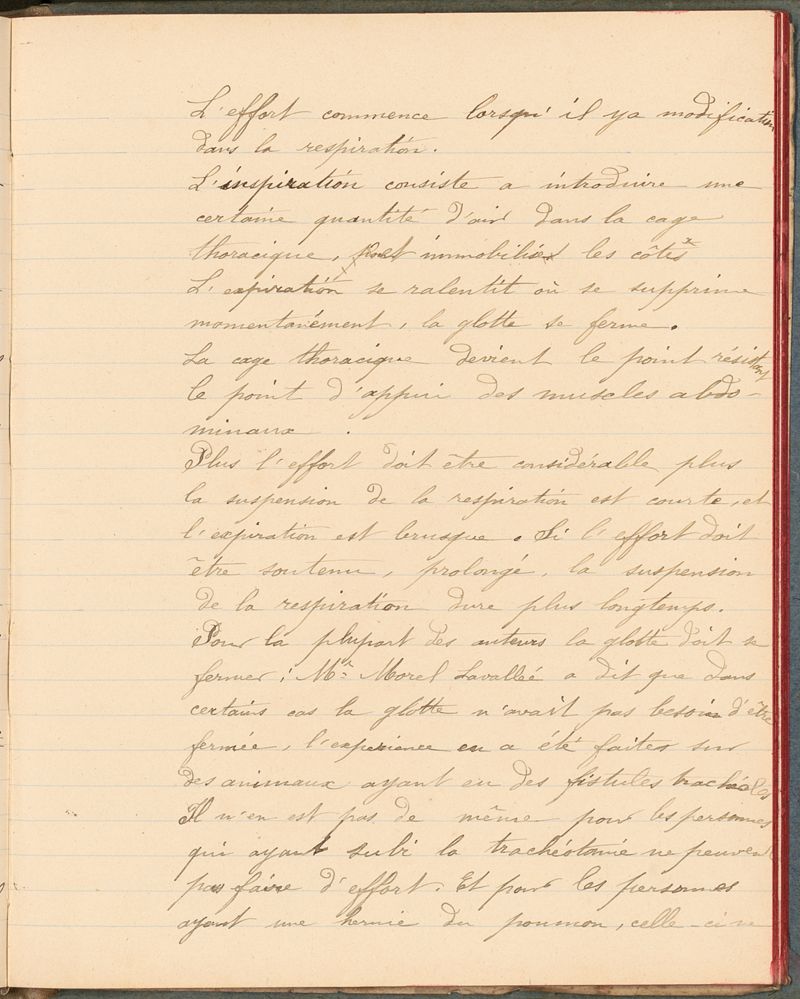 L'effort commence lorsqu'il y a modification
dans la respiration.
L'inspiration consiste a introduire une
certaine quantité d'air dans la cage
thoracique, immobilise les côtes
L'expiration se ralentit où se supprime
momentanément, la glotte se ferme.
La cage thoracique devient le point résistant
le point d'appui des muscles abdo-
minaux.
Plus l'effort doit être considérable plus
la suspension de la respiration est courte, et
l'expiration est brusque. Si l'effort doit
être soutenu, prolongé, la suspension
de la respiration dure plus longtemps.
Pour la plupart des auteurs la glotte doit se
fermer; Mr. Morel Lavallée a dit que dans
certains cas la glotte n'avait pas besoin d'être
fermée, l'experience en a été faites sur
des animaux ayant eu des fistules trachéales
Il n'en est pas de même pour les personnes
qui ayant subi la trachéotomie ne peuvent
pas faire d'effort. Et pour les personnes
ayant une hernie du poumon, celle-ci ne